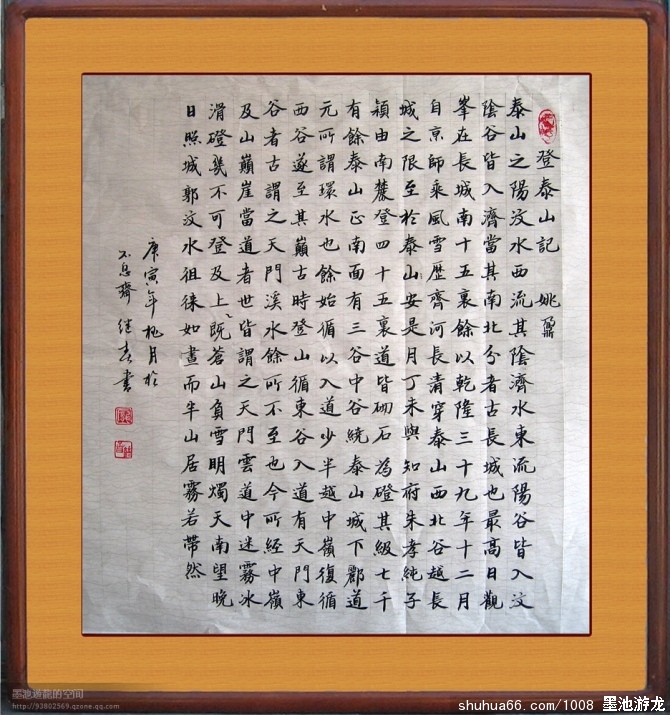 登泰山記 姚鼐
泰山之陽汶水西流其陰濟水東流陽谷皆入汶
陰谷皆入濟當其南北分者古長城也最高日觀
峯在長城南十五裏餘以乾隆三十九年十二月
自京師乘風雪歷齊河長清穿泰山西北谷越長
城之限至於泰山安是月丁未與知府朱孝純子
穎由南麓登四十五裏道皆砌石為磴其級七千
有餘泰山正南面有三谷中谷繞泰山城下酈道
元所謂環水也餘始循以入道少半越中嶺復循
西谷遂至其巔古時登山循東谷入道有天門東
谷者古謂之天門溪水餘所不至也今所經中嶺
及山巔崖當道者世皆謂之天門雲道中迷霧冰
滑磴幾不可登及上既蒼山負雪明燭天南望晚
日照城郭汶水徂徠如畫而半山居霧若帶然
庚寅年桃月於
不息齋 继春書
墨池游龍的空间
http://93802569.qzone.qq.com
shuhua66.com/1008 墨池游龙